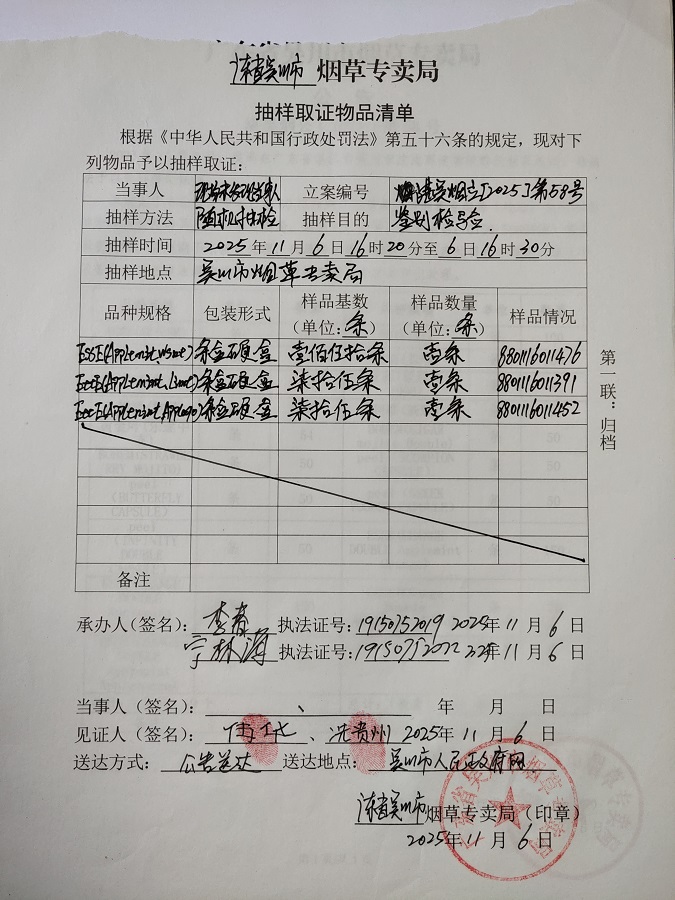 广东省吴川市烟草专卖局
抽样取证物品清单
根据《中华人民共和国行政处罚法》第五十六条的规定，现对下
列物品予以抽样取证：
当事人 现场未发现当事人 立案编号 吴烟立[2025]第58号
抽样方法 随机抽检 抽样目的 鉴别检验
抽样时间 2025年11月6日16时20分至6日16时30分
抽样地点 吴川市烟草专卖局
品种规格 包装形式 样品基数（单位：条） 样品数量（单位：条） 样品情况
条盒硬盒 壹佰伍拾条 壹条 8801116011476
条盒硬盒 柒拾伍条 壹条 8801116011391
条盒硬盒 柒拾伍条 壹条 8801116011452
备注
第一联：归档
承办人（签名）：李春 执法证号：19150752019 2025年11月6日
宁林海 执法证号：19150752022 2025年11月6日
当事人（签名）： 、 年 月 日
见证人（签名）： 、冼贵州 2025年11月6日
送达方式：公告送达 送达地点：吴川市人民政府网
广东省吴川市烟草专卖局（印章）
2025年11月6日